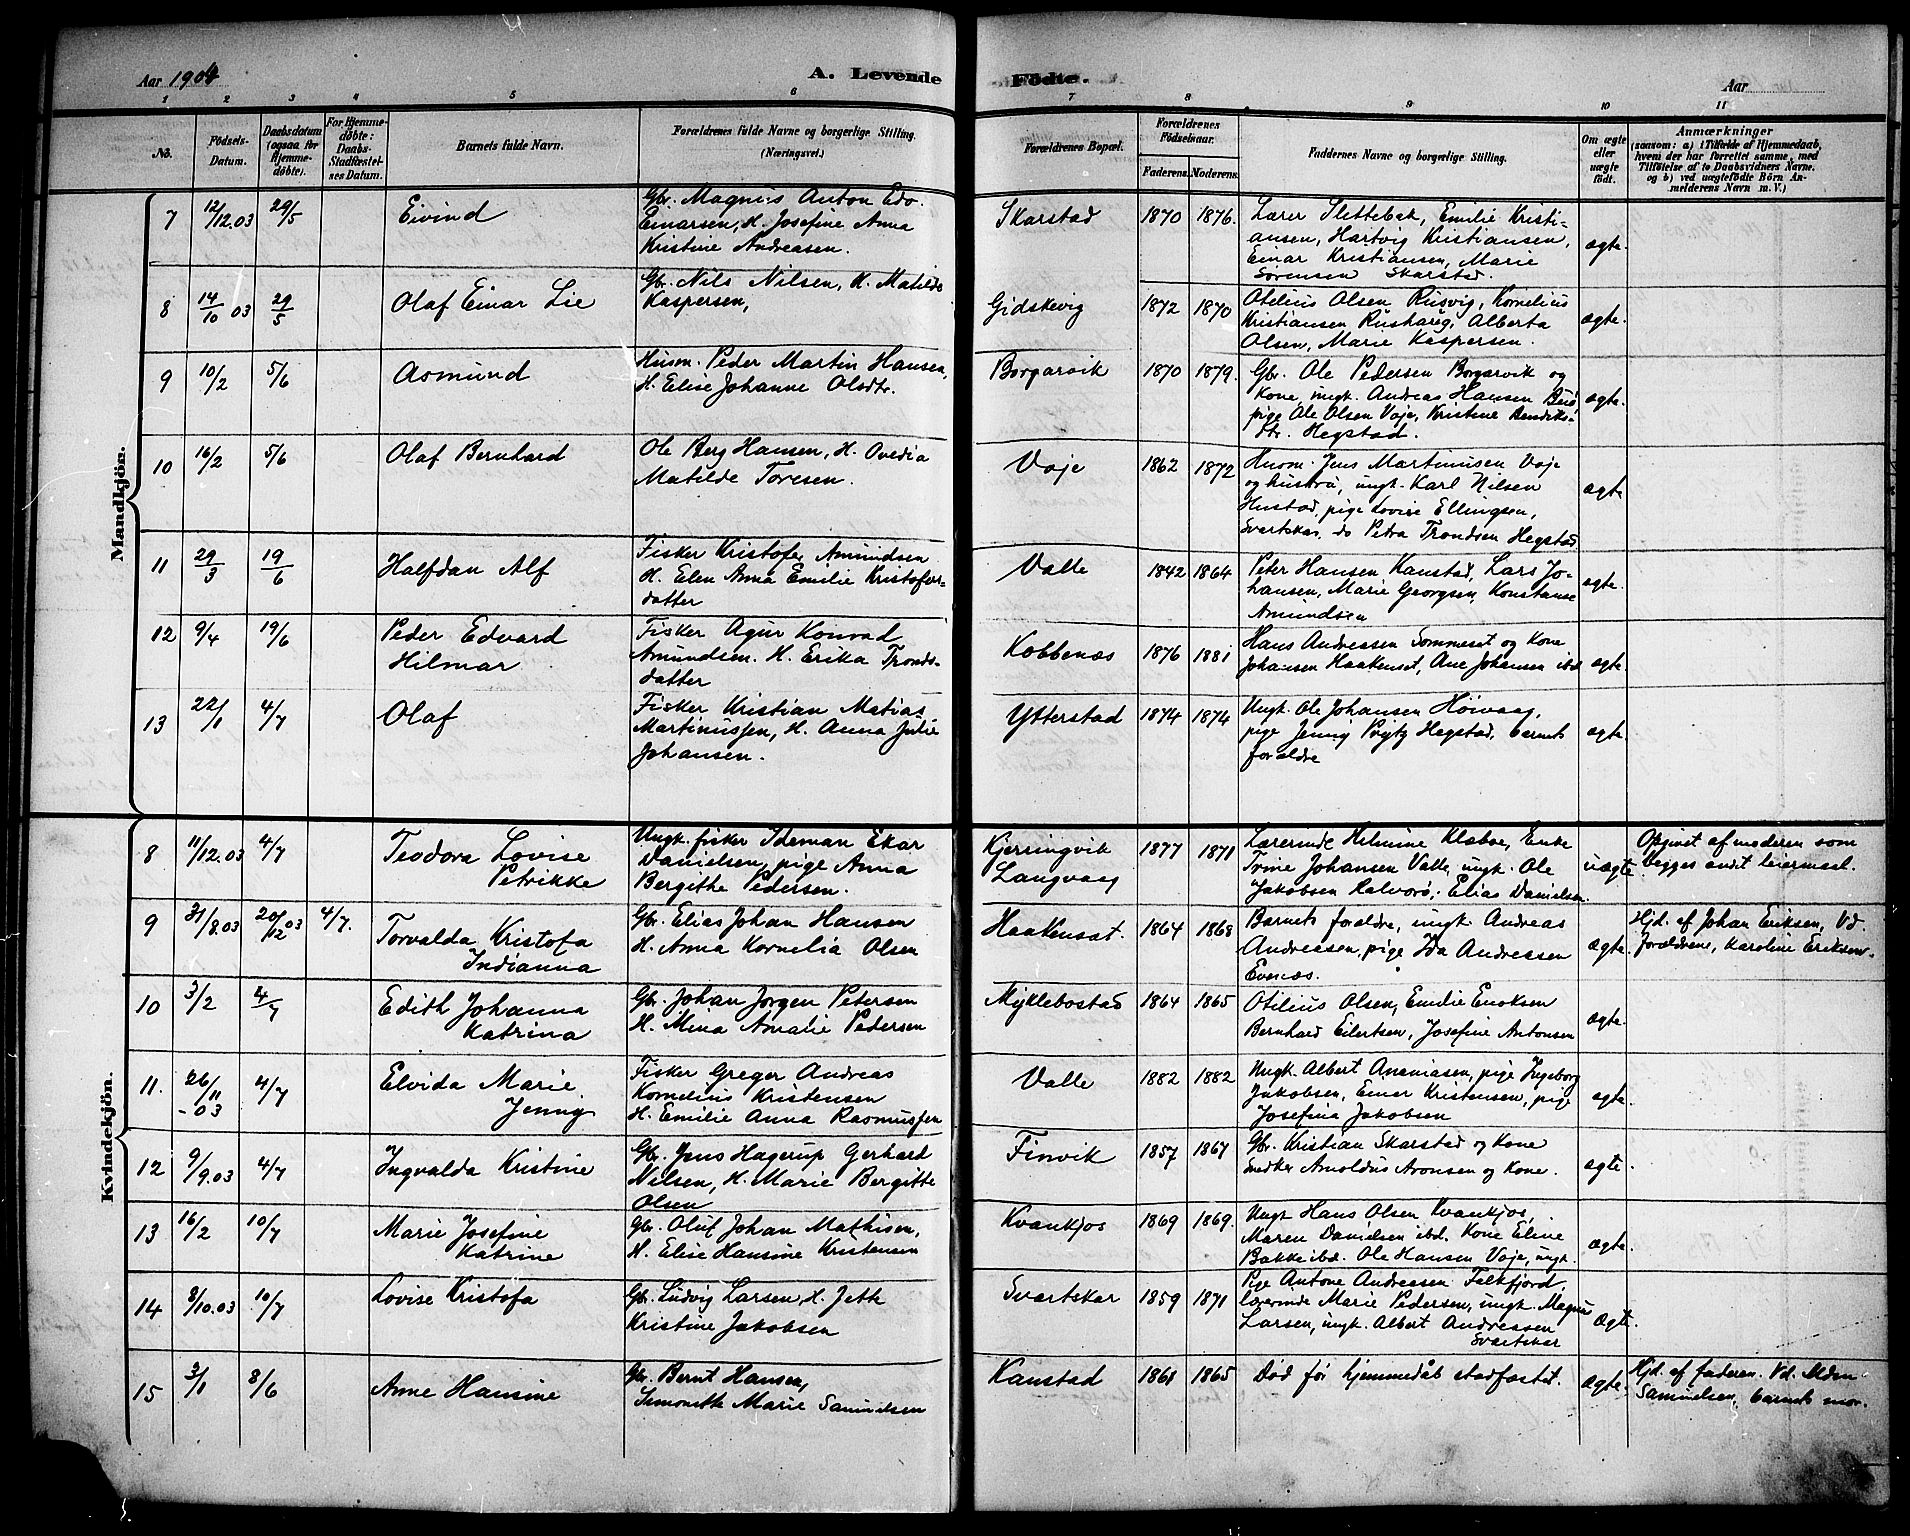 Aar 1904
A. Levende
Fødte.
Aar
1 2 3 4 5 6 7 8 9 10 11
No.
Fødsels-
Datum.
Daabsdatum
(ogsaa for
Hjemme-
døbte).
For Hjemme-
døbte:
Daabs-
Stadfæstel-
ses Datum.
Barnets fulde Navn.
Forældrenes fulde Navne og borgerlige Stilling.
(Næringsvei.)
Forældrenes Bopæl.
Forældrenes
Fødselsaar.
Faderens. Moderens.
Faddernes Navne og borgerlige Stilling.
Om ægte
eller
uægte
født.
Anmærkninger
(saasom: a) i Tilfælde af Hjemmedaab,
hvem der har forrettet samme, med
Tilføielse af to Daabsvidners Navne,
og b) ved uægtefødte Børn An-
melderens Navn m. V.)
Mandkjön.
7 12/12.03 29/5 Eivind
Gbr. Magnus Anton Edv.
Einarsen, H. Josefine Anna
Kristine Andreasen.
Skarstad 1870 1876.
Lærer Slettebak, Emilie Kristi-
ansen, Hartvig Kristiansen,
Einar Kristiansen, Marie
Sørensen Skarstad.
ægte.
8 14/10 03 29/5 Olaf Einar Lie
Gbr. Nils Nilsen, H. Matilde
Kaspersen,
Gidskevig 1872 1870
Otilius Olsen Rusvig, Kornelius
Kristiansen Alberta
Olsen, Marie Kaspersen.
ægte.
9 10/2 5/6 Asmund
Husm. Peder Martin Hansen,
H. Elise Johanne Olsdtr.
Borgarvik 1870 1879.
Gbr. Ole Pedersen Borgarvik og
Kone, ungk. Andreas Hansen
pige Ole Olsen Vaje, Kristine Bendiks-
dtr. Hegstad.
ægte.
10 16/2 5/6 Olaf Bernhard
Ole Berg Hansen, H. Ovedia
Matilde Toresen.
Vaje 1862 1872
Husm. Jens Martinusen Vaje
og hustru, ungk. Karl Nilsen
Hustad, pige Lovise Ellingsen,
Svartskar, do Petra Trondsen Hegstad
ægte
11 29/3 19/6 Halfdan Alf
Fisker Kristofer Amundsen
H. Elen Anna Emilie Kristofers-
datter
Valle 1842 1864
Peter Hansen Kanstad, Lars Jo-
hansen, Marie Georgsen, Konstanse
Amundsen
ægte.
12 9/4 19/6 Peder Edvard
Hilmar
Fisker Agur Konrad
Amundsen. H. Erika Tronds-
datter
Kobbenæs 1876 1881
Hans Andreassen Sommeset og Kone
Johansen Haakenset, Ane Johansen ibd
ægte.
13 22/1 4/7 Olaf
Fisker Kristian Matias
Martinussen, H. Anna Julie
Johansen.
Ytterstad 1874 1874
Ungk. Ole Johansen Høivaag,
pige Jenny Hegstad, barnets
forældre
ægte.
Kvindekjön.
8 11/12.03 4/7 Teodora Lovise
Petrikke
Ungk. fisker Ideman Ekar
Danielsen, pige Anna
Bergithe Pedersen.
Kjerringvik
Langvaag
1877 1871
Lærerinde Helmine Klæboe, Enke
Trine Johansen Valle, ungk. Ole
Jakobsen Kalvorø, Elias Danielsen
uægte
Opgivet af moderen som
begges andet leiermaal.
9 31/8.03 20/12 03 4/7. Torvalda Kristofa
Indianna
Gbr. Elias Johan Hansen
H. Anna Kornelia Olsen
Haakensæt. 1864 1868
Barnets forældre, ungk. Andreas
Andreassen, pige Ida Andreasen
Evenæs.
ægte.
Hjd. af Johan Eriksen, Vd.
Forældrene, Karoline Eriksen.
10 3/2 4/7 Edith Johanna
Katrina
Gbr. Johan Jørgen Petersen
H. Mina Amalie Pedersen
Myklebostad 1864 1865
Otilius Olsen, Emilie Enoksen
Bernhard Eilertsen, Josefine Antonsen
ægte.
11. 26/11 -03 4/7 Elvida Marie
Jenny
Fisker Greger Andreas
Kornelius Kristensen
H. Emilie Anna Rasmussen
Valle 1882 1882
Ungk. Albert Ananiasen, pige Ingeborg
Jakobsen, Einar Kristensen, pige
Josefina Jakobsen
ægte.
12 9/9.03 4/7 Ingvalda Kristine
Gbr. Jens Hagerup Gerhard
Nilsen, H. Marie Bergitte
Olsen
Finvik 1857 1867
Gbr. Kristian Skarstad og Kone
Snedker Arnoldus Aronsen og Kone.
ægte.
13 16/2 10/7 Marie Josefine
Katrine
Gbr. Oluf Johan Mathisen,
H. Elise Hansine Kristensen
Kvankjos 1869 1869.
Ungk Hans Olsen Kvankjos,
Maren Danielsen ibd. Kone Eline
Bakke ibd. Ole Hansen Vaje, ungk.
ægte.
14 3/10.03 10/7 Lovise Kristofa
Gbr. Ludvig Larsen, H. Jette
Kristine Jakobsen
Svartskar 1859 1871
Pige Antone Andreasen Falkfjord,
lærerinde Marie Pedersen, ungk. Magnus
Larsen, ungk. Albert Andreasen
Svartskar
Ægte.
15 3/1 8/6 Anne Hansine
Gbr. Bernt Hansen,
Simonette Marie Samuelsen
Kanstad 1861 1865
Død før hjemmedåb stadfæstet.
ægte.
Hjd. af faderen. Vd.
Samuelsen, barnets mor.